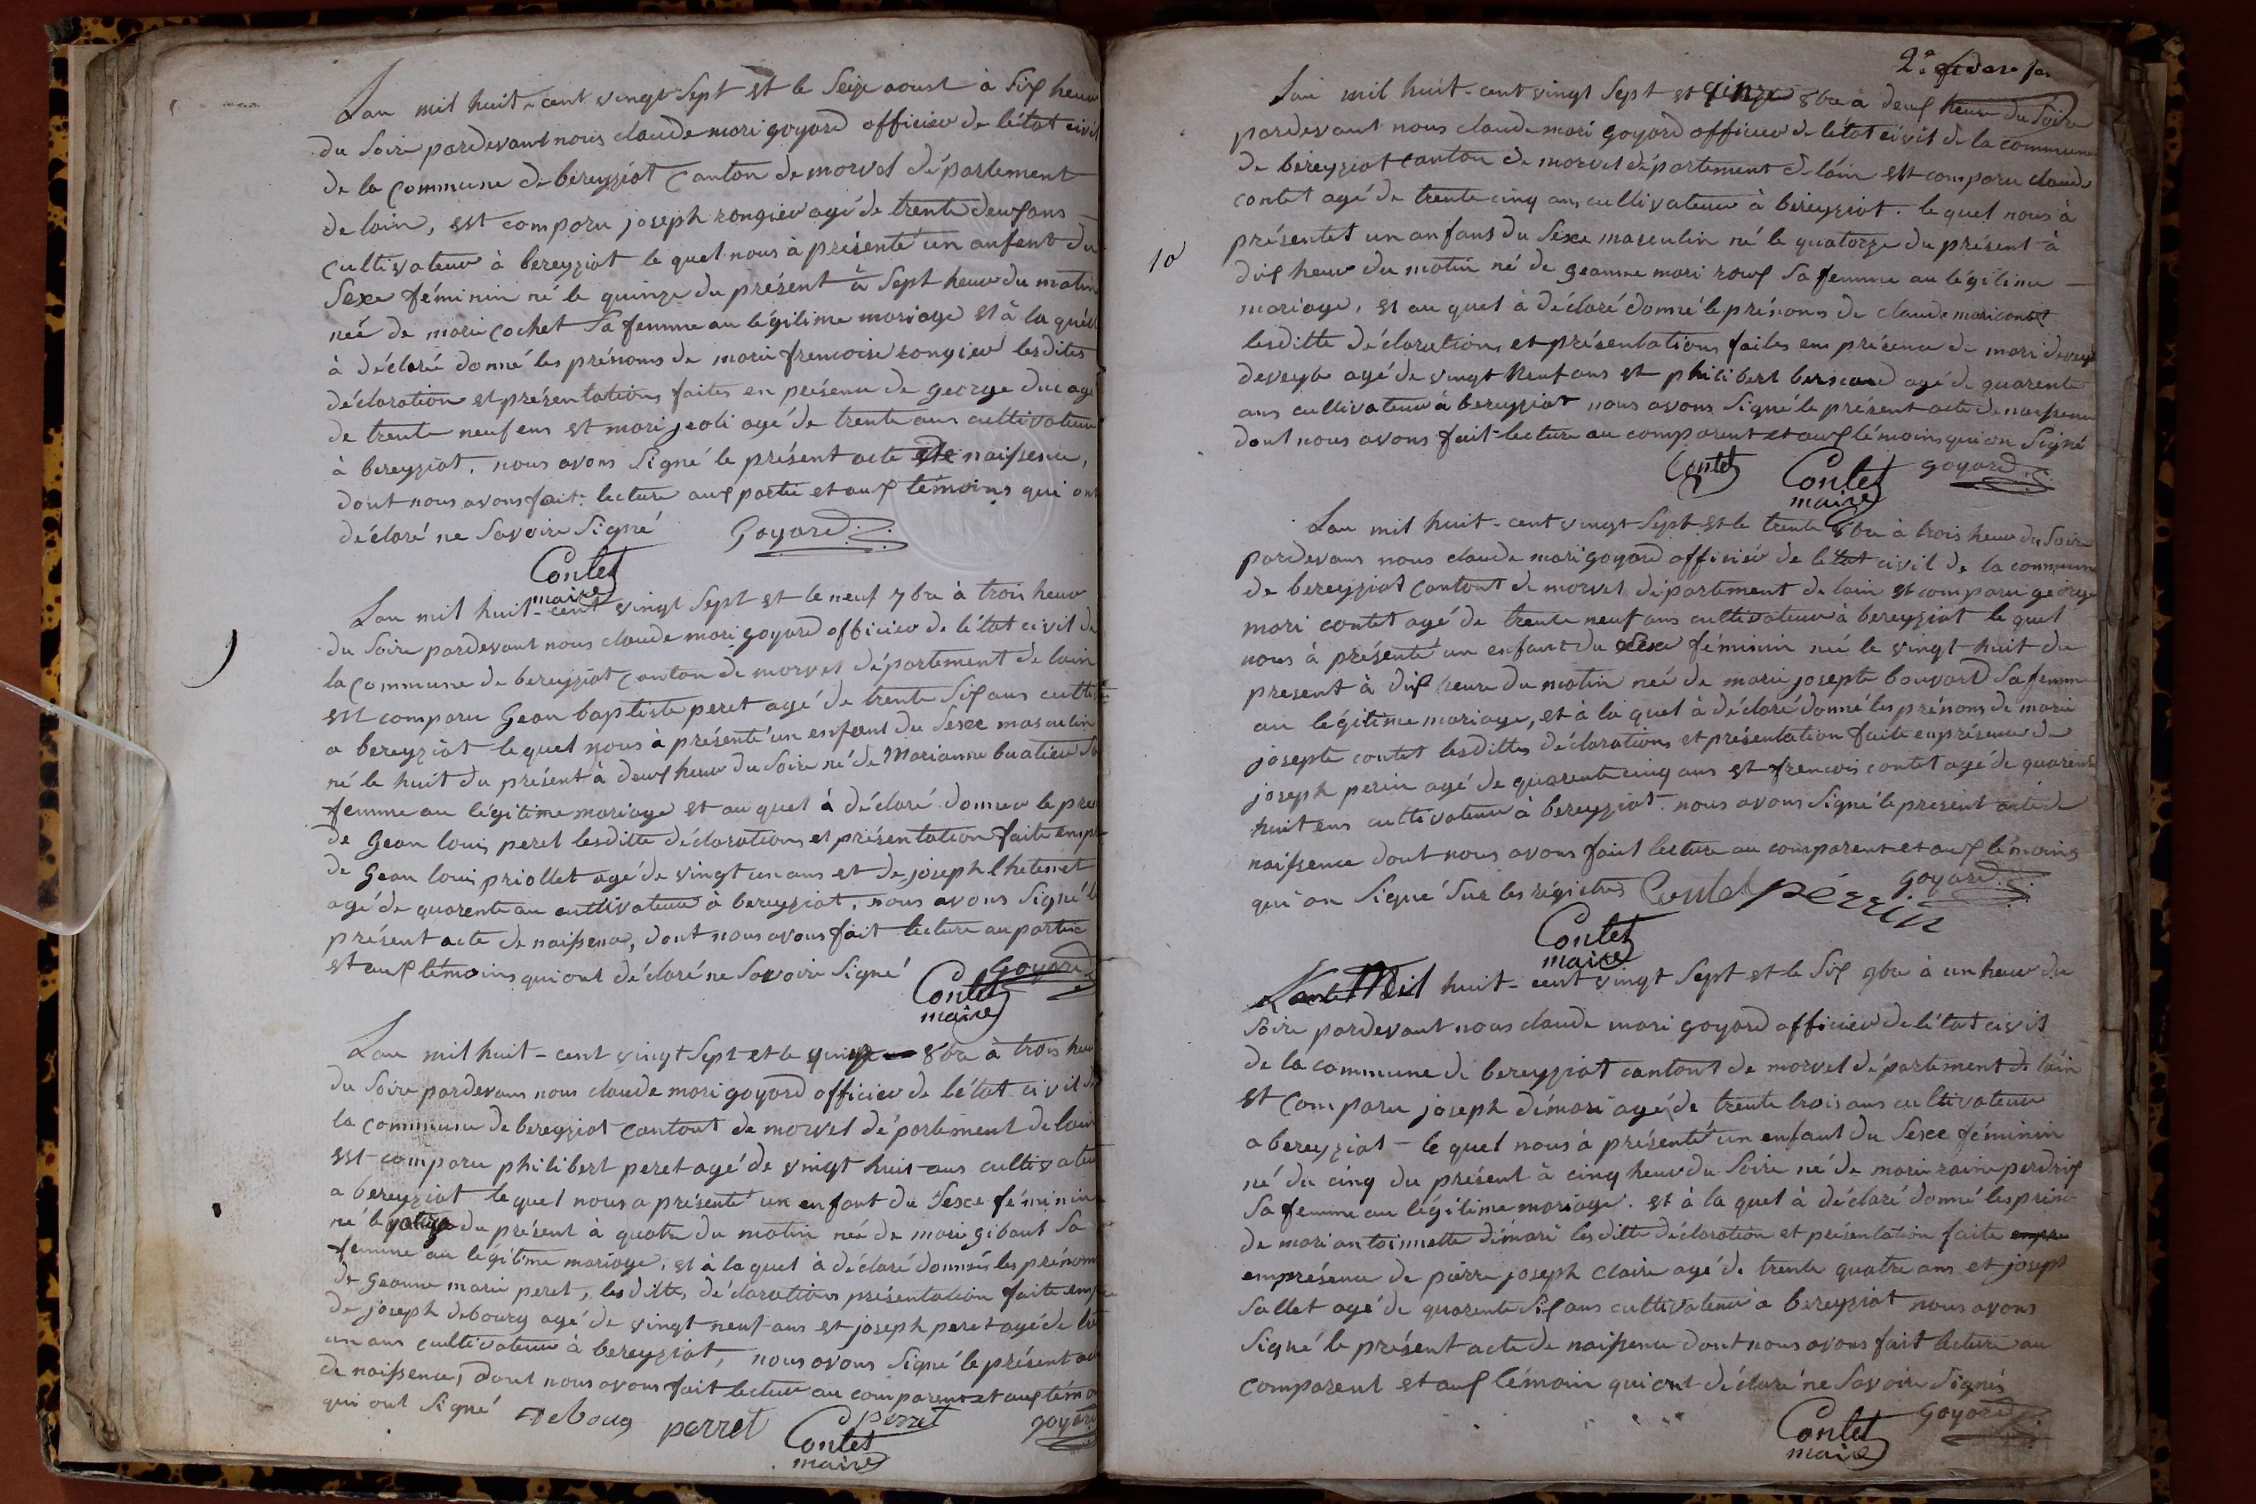 Lan mil huit-cent vingt Sept et le Seize aoust à Six heur
du Soire pardevant nous claude mari goyard officier de létat civil
de la Commune de bereyziat Canton de morvel département
de lain, est comparu joseph rongier agé de trente deux ans
Cultivateur à bereyziat le quel nous à présenté un anfent du
Sexe féminin né le quinze du présent à Sept heur du matin
neé de marie cochet Sa femme au légitime mariage et à la quel
à déclaré donné les prénoms de marie frencoise rongier lesdites
déclaration et présentations faites en présence de george duc agé
de trente neuf ens et mari jeoli agé de trente ans cultivateur
à bereyziat, nous avons Signé le présent acte de naissence,
dont nous avons fait lecture aux partie et aux témoins qui ont
déclaré ne Savoire Signé Goyard
Contet
maire
9
Lan mil huit-cent vingt Sept et le neuf 7bre à trois heur
du Soire pardevant nous claude mari goyard officier de létat civil de
la Commune de bereyziat Canton de morvel département de lain
est comparu Gean baptiste peret agé de trente Six ans culti
a bereyziat lequel nous à présenté un enfant du Sexe masculin
né le huit du présent à deux heur du Soire né de Marianne buatier Sa
femme au légitime mariage et au quel à déclaré donner le pre
de Gean louis peret lesditte déclarations et présentation faite enpr
de Gean louis priollet agé de vingt un ans et de joseph
agé de quarente an cultivateur à bereyziat, nous avons Signé le
présent acte de naissence, dont nous avons fait lecture au partie
et aux témoins qui ont déclaré ne Savoire Signé goyard
Contet
maire
Lan mil huit-cent vingt Sept et le quinze 8bre à trois heur
du Soire pardevans nous claude mari goyard officier de létat civil de
la commune de bereyziat cantont de morvel département de lain
est comparu philibert peret agé de vingt huit ans cultivateu
a bereyziat le quel nous a présenté un enfant du Sexe féminin
né le du présent à quatre du matin neé de mari gibaut Sa
femme au légitime mariage, et à la quel à déclaré donnés les prénom
de Geanne marie peret, les dittes déclarations présentation faite enp
de joseph debourg agé de vingt neuf ans et joseph peret agé de
un ans cultivateur à bereyziat, nous avons Signé le présent ac
de naissence, dont nous avons fait lecture au comparent et aux témo
qui ont Signé Deboug perret perret goyard
Contet
maire
Lan mil huit-cent vingt Sept et Qinze 8bre à deux heure du Soire
pardevant nous claude mari goyard officier de létat civil de la commune
de béreyziat Canton de morvel département de láin est comparu claude
contet agé de trente cinq ans cultivateur à bireyziat. le quel nous à
10
présentet un anfans du Sexe masculin né le quatorze du présent à
dix heur du matin né de geanne mari roux Sa femme au légitime
mariage, et au quel à déclaré donné le prénoms de claude mari contet
lesditte déclarations et présentations faites ens présence de mari
deveyle agé de vingt Neuf ans et philibert agé de quarente
ans cultivateur à bereyziat nous avons Signé le présent acte de naissence
dont nous avons fait lecture au comparent et aux témoins qui on Signé
Contet Contet goyard
maire
Lan mil huit-cent vingt Sept et le trente 8bre à trois heur du Soire
pardevans nous claude mari goyard officier de létat civil de la commune
de bereyziat Cantont de morvel département de lain et comparu george
mari contet agé de trente neuf ans cultivateur à bereyziat le quel
nous à présenté un enfant du Sexe féminin né le vingt huit du
present à dix heure du matin neé de marie josepte bouvard Sa femme
au légitime mariage, et à la quel à déclaré donné les prénoms de marie
josepte contet lesdittes déclarations et présentation faite enprésence de
joseph perin agé de quarente cinq ans et frencois contet agé de quarente
huit ens cultivateur à bereyziat. nous avons Signé le present acte de
naissence dont nous avons fait lecture au comparent et aux témoins
qui on Signé Sur les régistres Contet pérrin goyard
Contet
maire
Mil huit-cent vingt Sept et le Six 9bre à un heur du
Soire pardevant nous claude mari goyard officier de létat civil
de la commune de bereyziat cantont de morvel département de láin
et Comparu joseph démari agé de trente trois ans cultivateur
a bereyziat - le quel nous à présenté un enfant du Sexe féminin
né du cinq du présent à cinq heur du Soire né de marie perdrix
Sa femme au légitime mariage. et à la quel à déclaré donné les préno
de mari antoinnette démari lesditte déclaration et présentation faite
emprésence de pierre joseph Claire agé de trente quatre ans et joseph
Sallet agé de quarente Six ans cultivateur à bereyziat nous avons
Signé le présent acte de naissence dont nous avons fait lecture au
comparent et aux témoin qui ont déclaré ne Savoire Signés
Contet goyard
maire